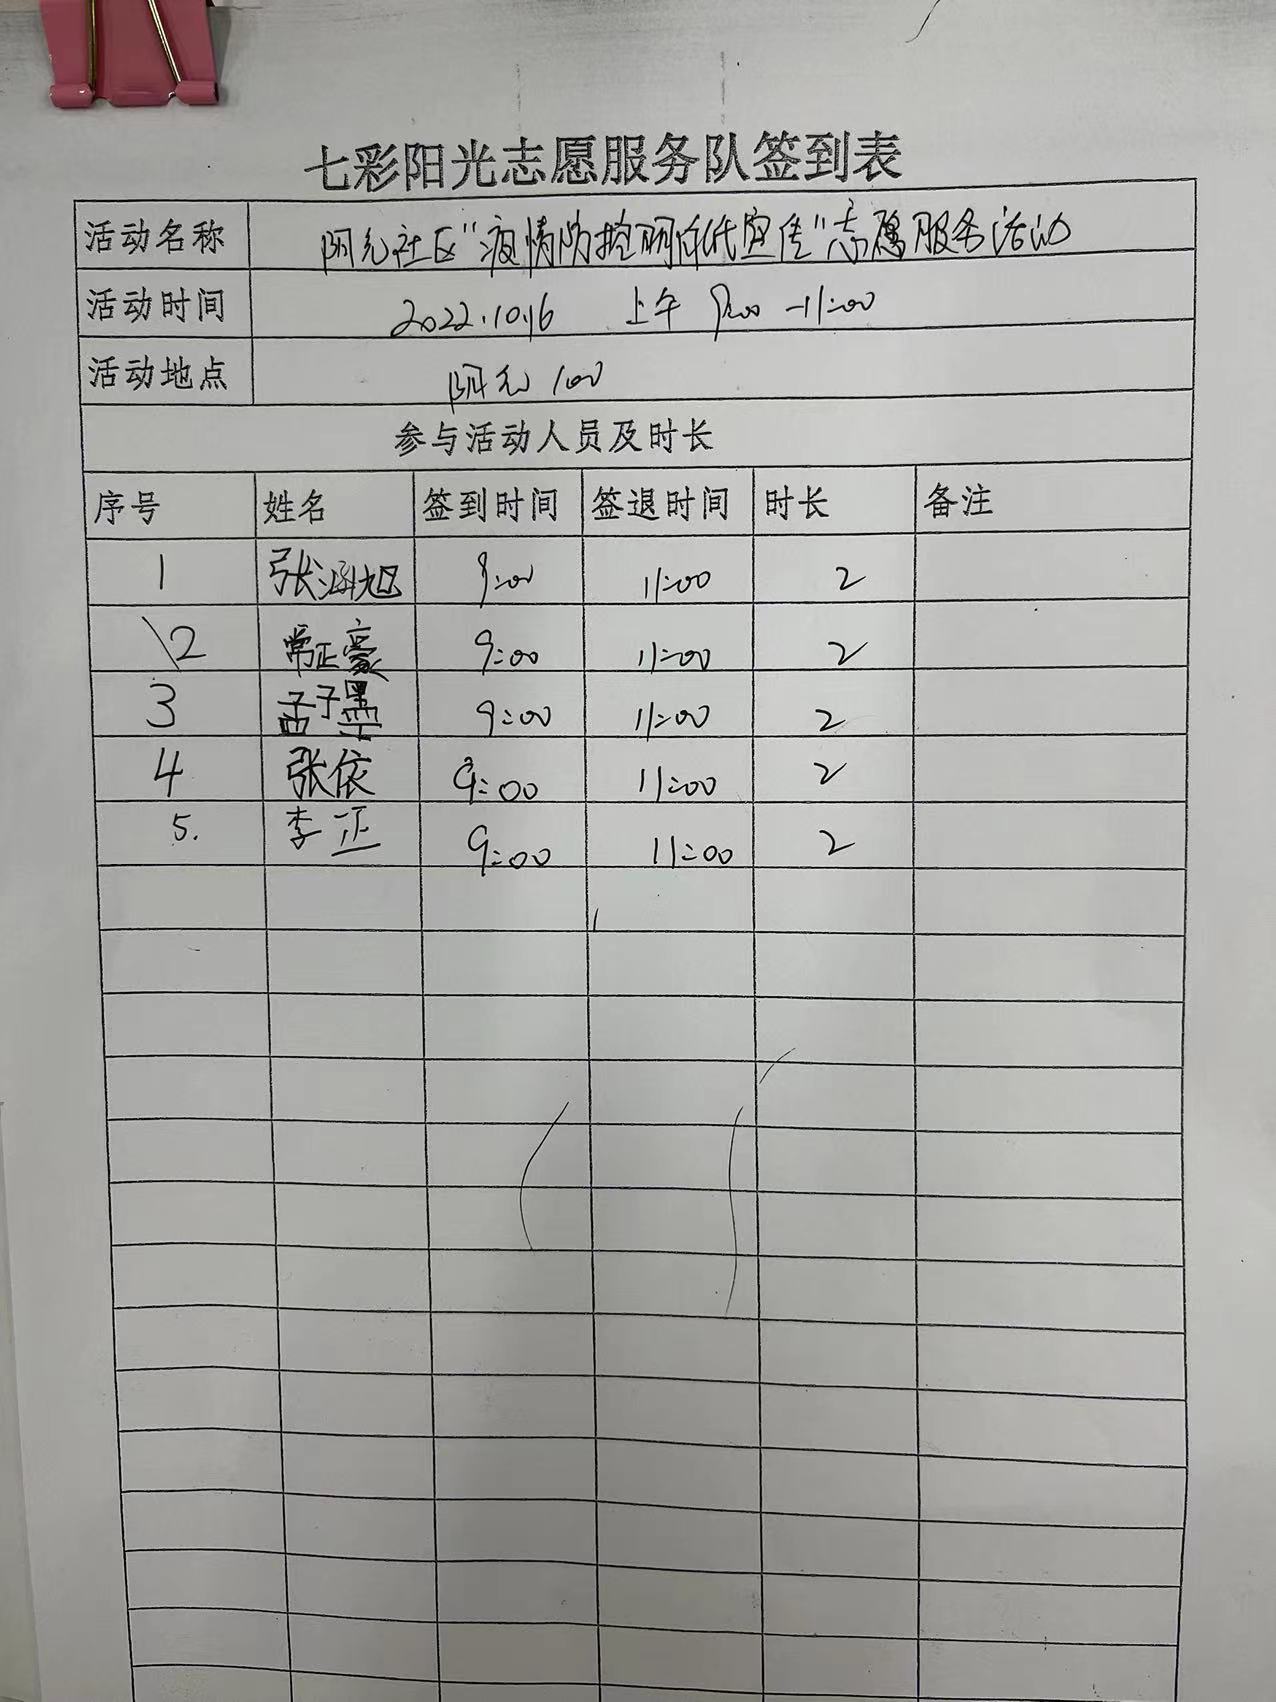 七彩阳光志愿服务队签到表
活动名称 阳光社区“疫情防控 宣传”志愿服务活动
活动时间 2022.10.16 上午 9:00-11:00
活动地点 阳光100
参与活动人员及时长
序号 姓名 签到时间 签退时间 时长 备注
1 张涵旭 9:00 11:00 2
2 常正豪 9:00 11:00 2
3 孟子墨 9:00 11:00 2
4 张依 9:00 11:00 2
5. 李正 9:00 11:00 2